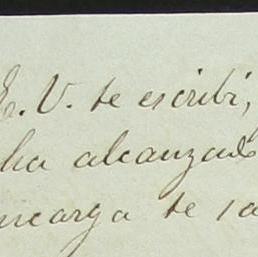 E. V. te escribi,
ha alcanzado
ncarga te sa